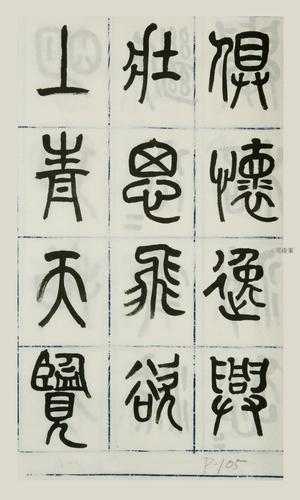 俱懷逸興
壯思飛欲
上青天覽
P-105